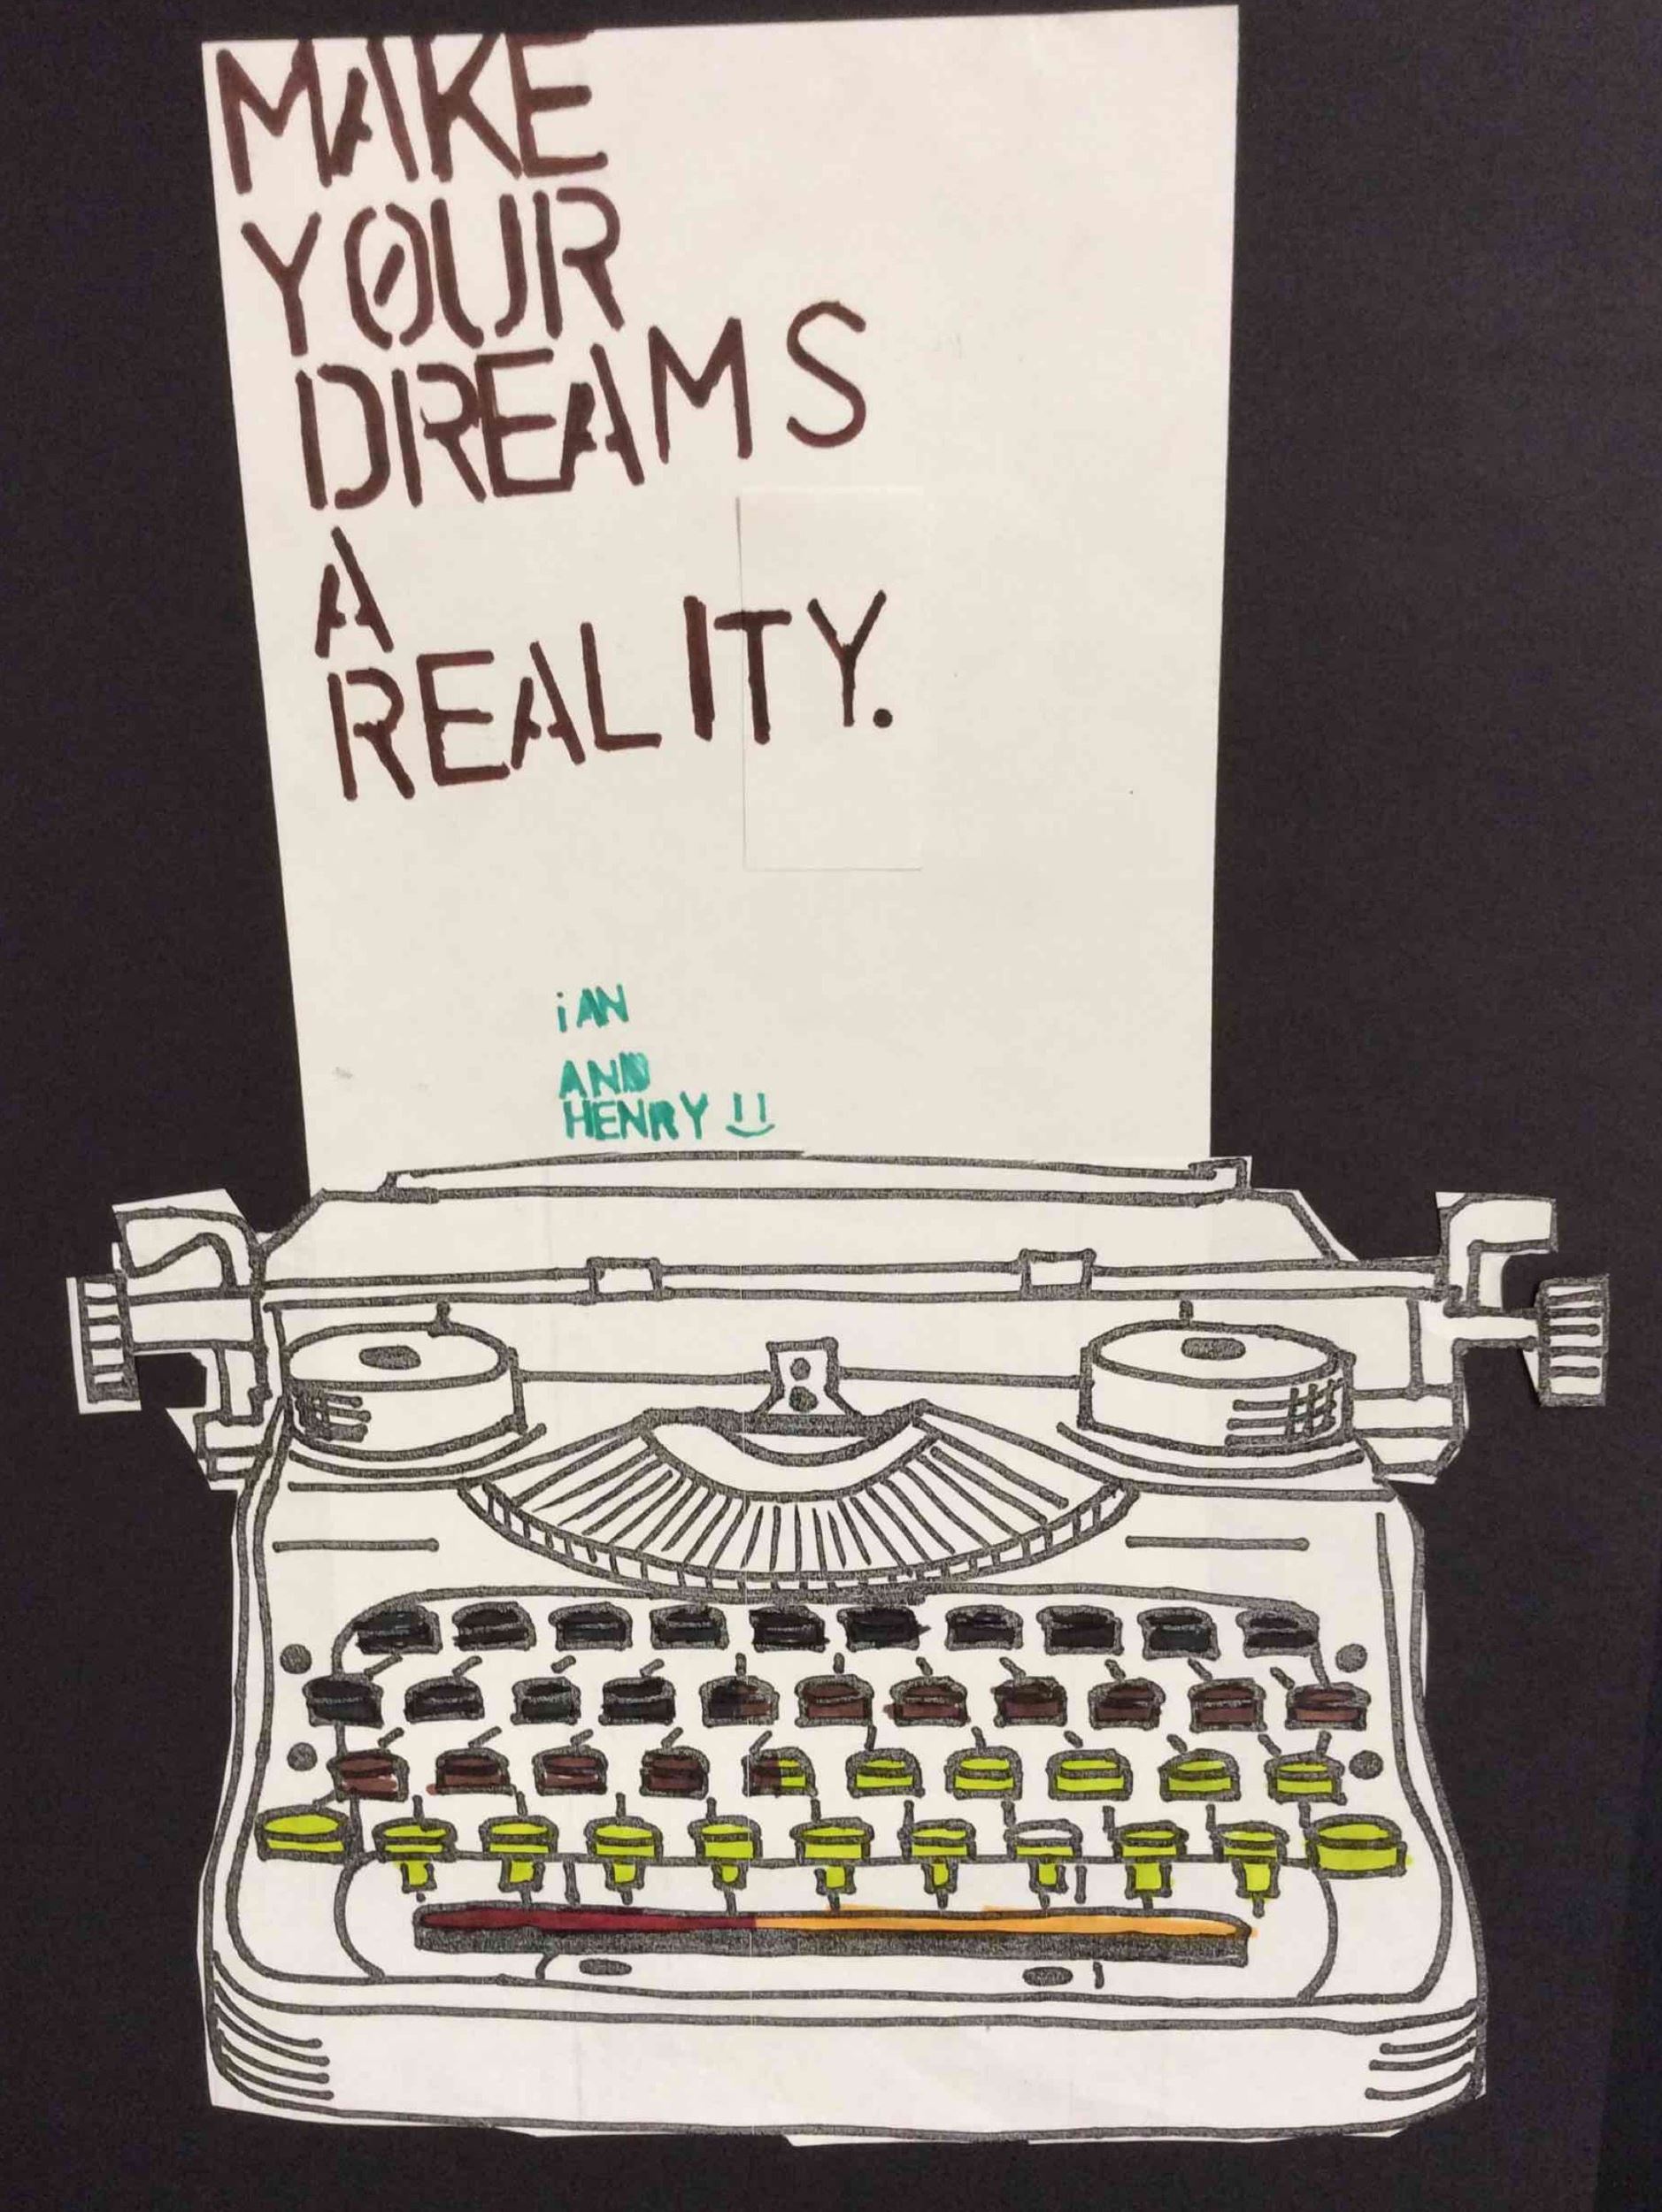 MAKE
YOUR
DREAMS
A
REALITY.
iAN
AND
HENRY